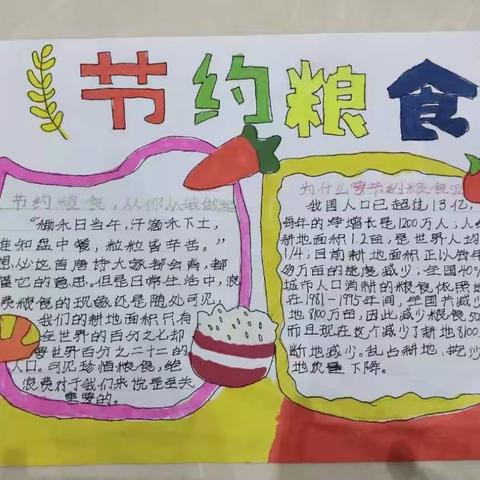 节约粮食
节约粮食,从你从我做起
“锄禾日当午,汗滴禾下土,
谁知盘中餐,粒粒皆辛苦。”
想必这首唐诗大家都会背,都
懂它的意思。但是日常生活中,浪
费粮食的现象还是随处可见,
我们的耕地面积只有
全世界的百分之七却
世界百分之二十二的
人口。可见珍惜粮食,绝
浪费对于我们来说是至关
重要的。
为什么要节约粮食
我国人口已超过13亿,
每年的净增长是1200万人;人
耕地面积1.2亩,是世界人均
1/4;目前耕地面积正以每年
万亩的速度减少;全国40%
城市人口消耗的粮食依照
在1981-1995年间,全国共减少
地8100万亩,因此减少粮食50
而且现在这个减少了耕地8100
断地减少。乱占耕地、挖沙
地质量下降。